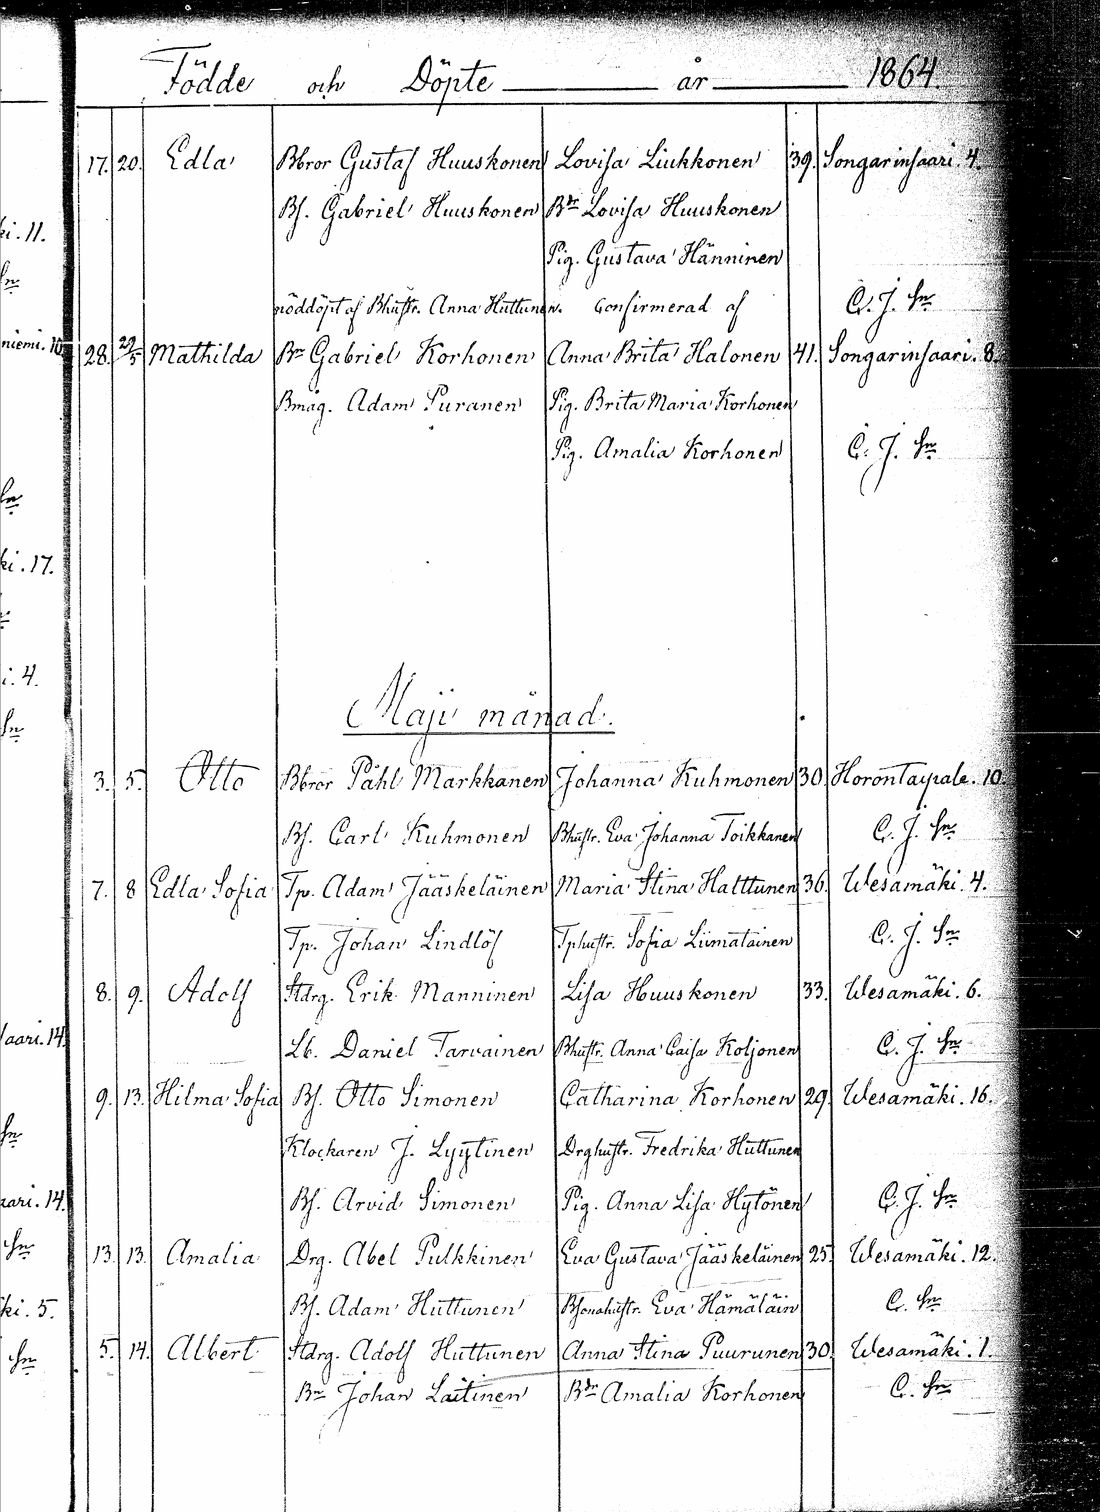 Födde och Döpte år 1864.
17. 20. Edla Bbror Gustaf Huuskonen Lovisa Liukkonen 39. Songarinsaari. 4.
Bs. Gabriel Huuskonen Bdr Lovisa Huuskonen
ki. 11.
Pig. Gustava Hänninen
nöddöpt af Bhustr. Anna Huttunen. Confirmerad af C. J. Sn
niemi. 10.
28. 29/5 Mathilda Bn Gabriel Korhonen Anna Brita Halonen 41. Songarinsaari. 8.
Bmåg. Adam Puranen Pig. Brita Maria Korhonen
Pig. Amalia Korhonen C. J. Sn
Sn
ki. 17.
i. 4.
Sn
Maji månad.
3. 5. Otto Bbror Påhl Markkanen Johanna Kuhmonen 30. Horontaipale. 10.
Bs. Carl Kuhmonen Bhustr. Eva Johanna Toikkanen C. J. Sn
7. 8 Edla Sofia Tp. Adam Jääskeläinen Maria Stina Halttunen 36. Wesamäki. 4.
Tp. Johan Lindlöf Tphustr. Sofia Liimatainen C. J. Sn
8. 9. Adolf Stdrg. Erik Manninen Lisa Huuskonen 33. Wesamäki. 6.
saari. 14.
Lb. Daniel Tarvainen Bhustr. Anna Caisa Koljonen C. J. Sn
9. 13. Hilma Sofia Bs. Otto Simonen Catharina Korhonen 29. Wesamäki. 16.
Sn
Klockaren J. Lyytinen Drghustr. Fredrika Huttunen
aari. 14.
Bs. Arvid Simonen Pig. Anna Lisa Hytönen C. J. Sn
Sn
13. 13. Amalia Drg. Abel Pulkkinen Eva Gustava Jääskeläinen 25. Wesamäki. 12.
ki. 5.
Bs. Adam Huttunen Bsonahustr. Eva Hämäläin C. Sn
Sn
5. 14. Albert Stdrg. Adolf Huttunen Anna Stina Puurunen 30. Wesamäki. 1.
Bn Johan Laitinen Bdr Amalia Korhonen C. Sn